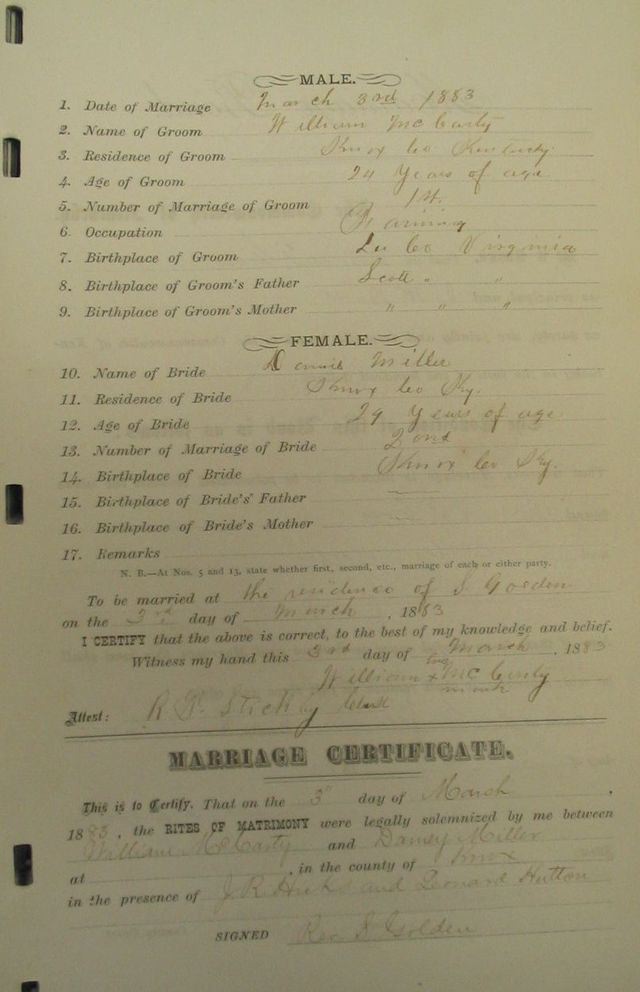 MALE.
1. Date of Marriage March 3rd 1883
2. Name of Groom William McCarty
3. Residence of Groom Knox Co Kentucky
4. Age of Groom 24 Years of age
5. Number of Marriage of Groom 1st.
6. Occupation Farming
7. Birthplace of Groom Lee Co Virginia
8. Birthplace of Groom's Father Scott " "
9. Birthplace of Groom's Mother " " "
FEMALE.
10. Name of Bride Miller
11. Residence of Bride Knox Co Ky.
12. Age of Bride 29 Years of age
13. Number of Marriage of Bride 2ond
14. Birthplace of Bride Knox Co Ky.
15. Birthplace of Bride's Father
16. Birthplace of Bride's Mother
17. Remarks
N. B.—At Nos. 5 and 13, state whether first, second, etc., marriage of each or either party.
To be married at the residence of
on the 3rd day of March, 1883
I CERTIFY that the above is correct, to the best of my knowledge and belief.
Witness my hand this 3rd day of March, 1883
his
William x McCarty
mark
Attest: R. Clerk
MARRIAGE CERTIFICATE.
This is to Certify, That on the 3" day of March,
1883, the RITES OF MATRIMONY were legally solemnized by me between
William McCarty and Miller
at , in the county of Knox
in the presence of J. R. Hicks and Leonard Hutton
SIGNED Rev. Golden